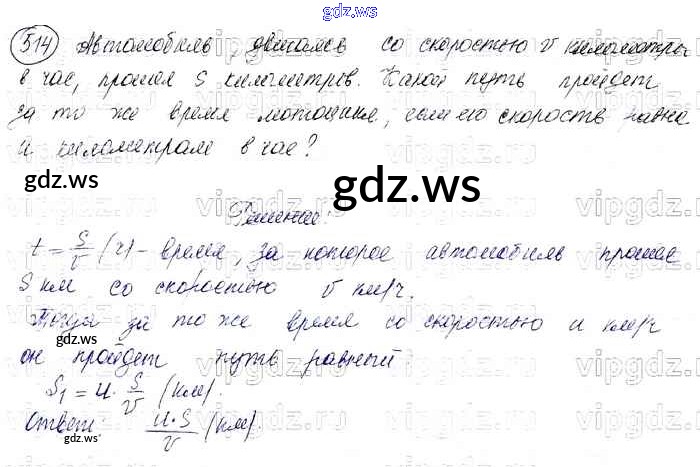 gdz.ws
514 Автомобиль, двигаясь со скоростью v километры
в час, прошел S километров. Какой путь пройдет
за то же время мотоцикл, если его скорость равна
u километрам в час?
gdz.ws
gdz.ws
Решение:
t = S/v (ч) - время, за которое автомобиль прошел
S км со скоростью v км/ч.
Тогда за то же время со скоростью u км/ч
он пройдет путь равный
gdz.ws
S₁ = u · S/v (км).
Ответ: u·S/v (км)
gdz.ws
vipgdz.ru